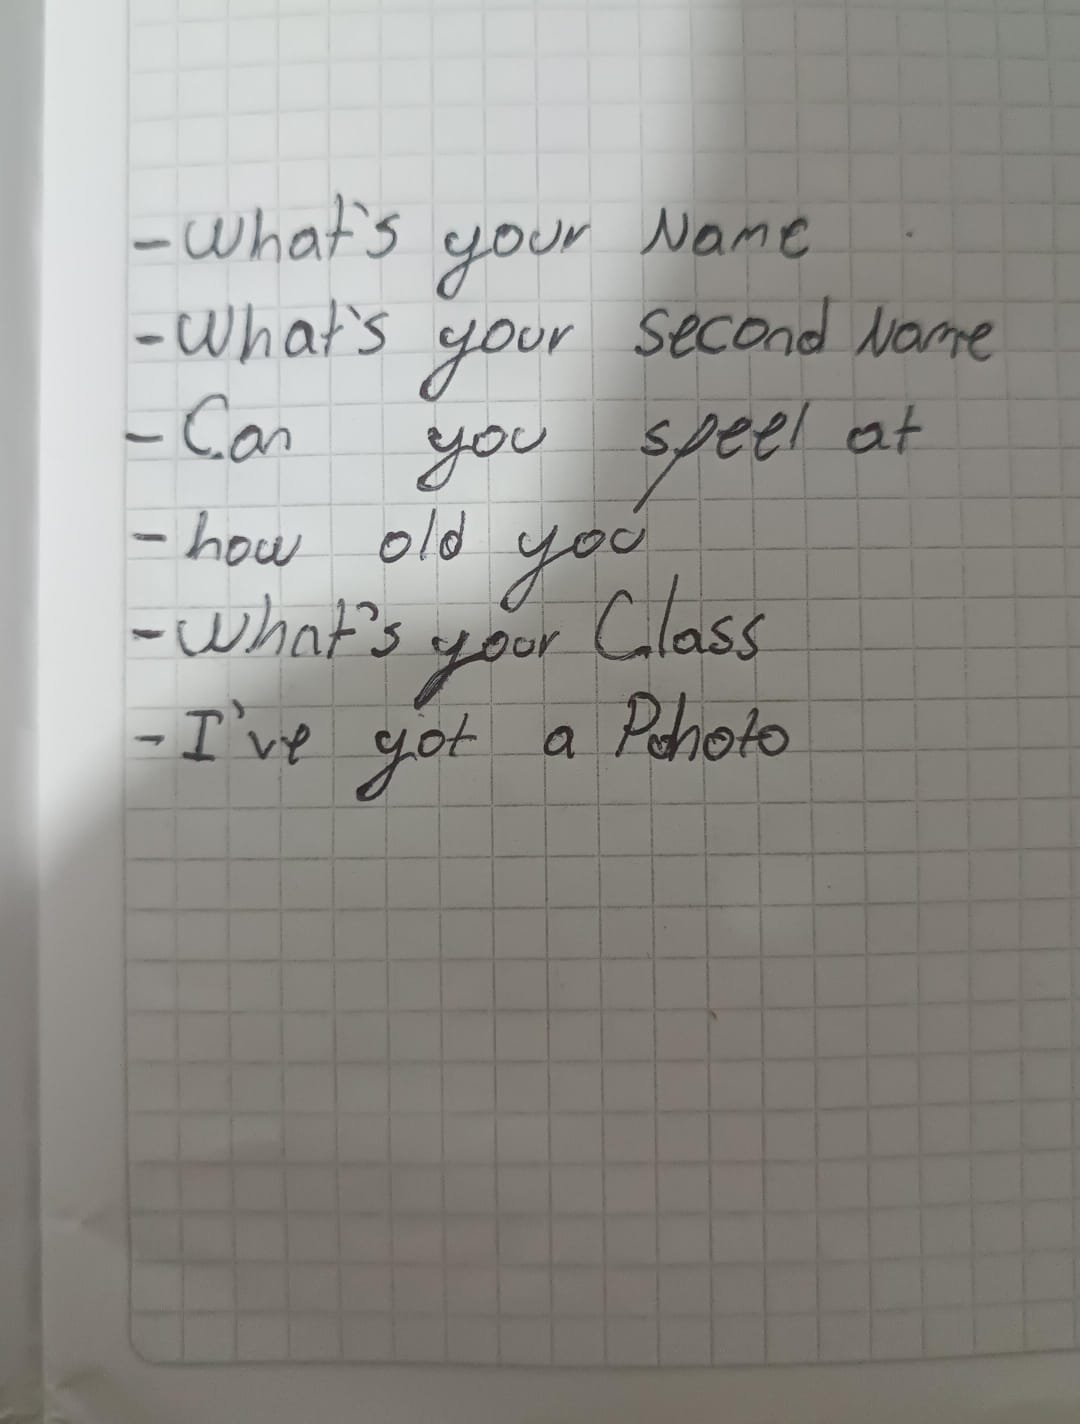 - What's your Name
- What's your second Name
- Can you speel at
- how old you
- What's your Class
- I've got a Photo